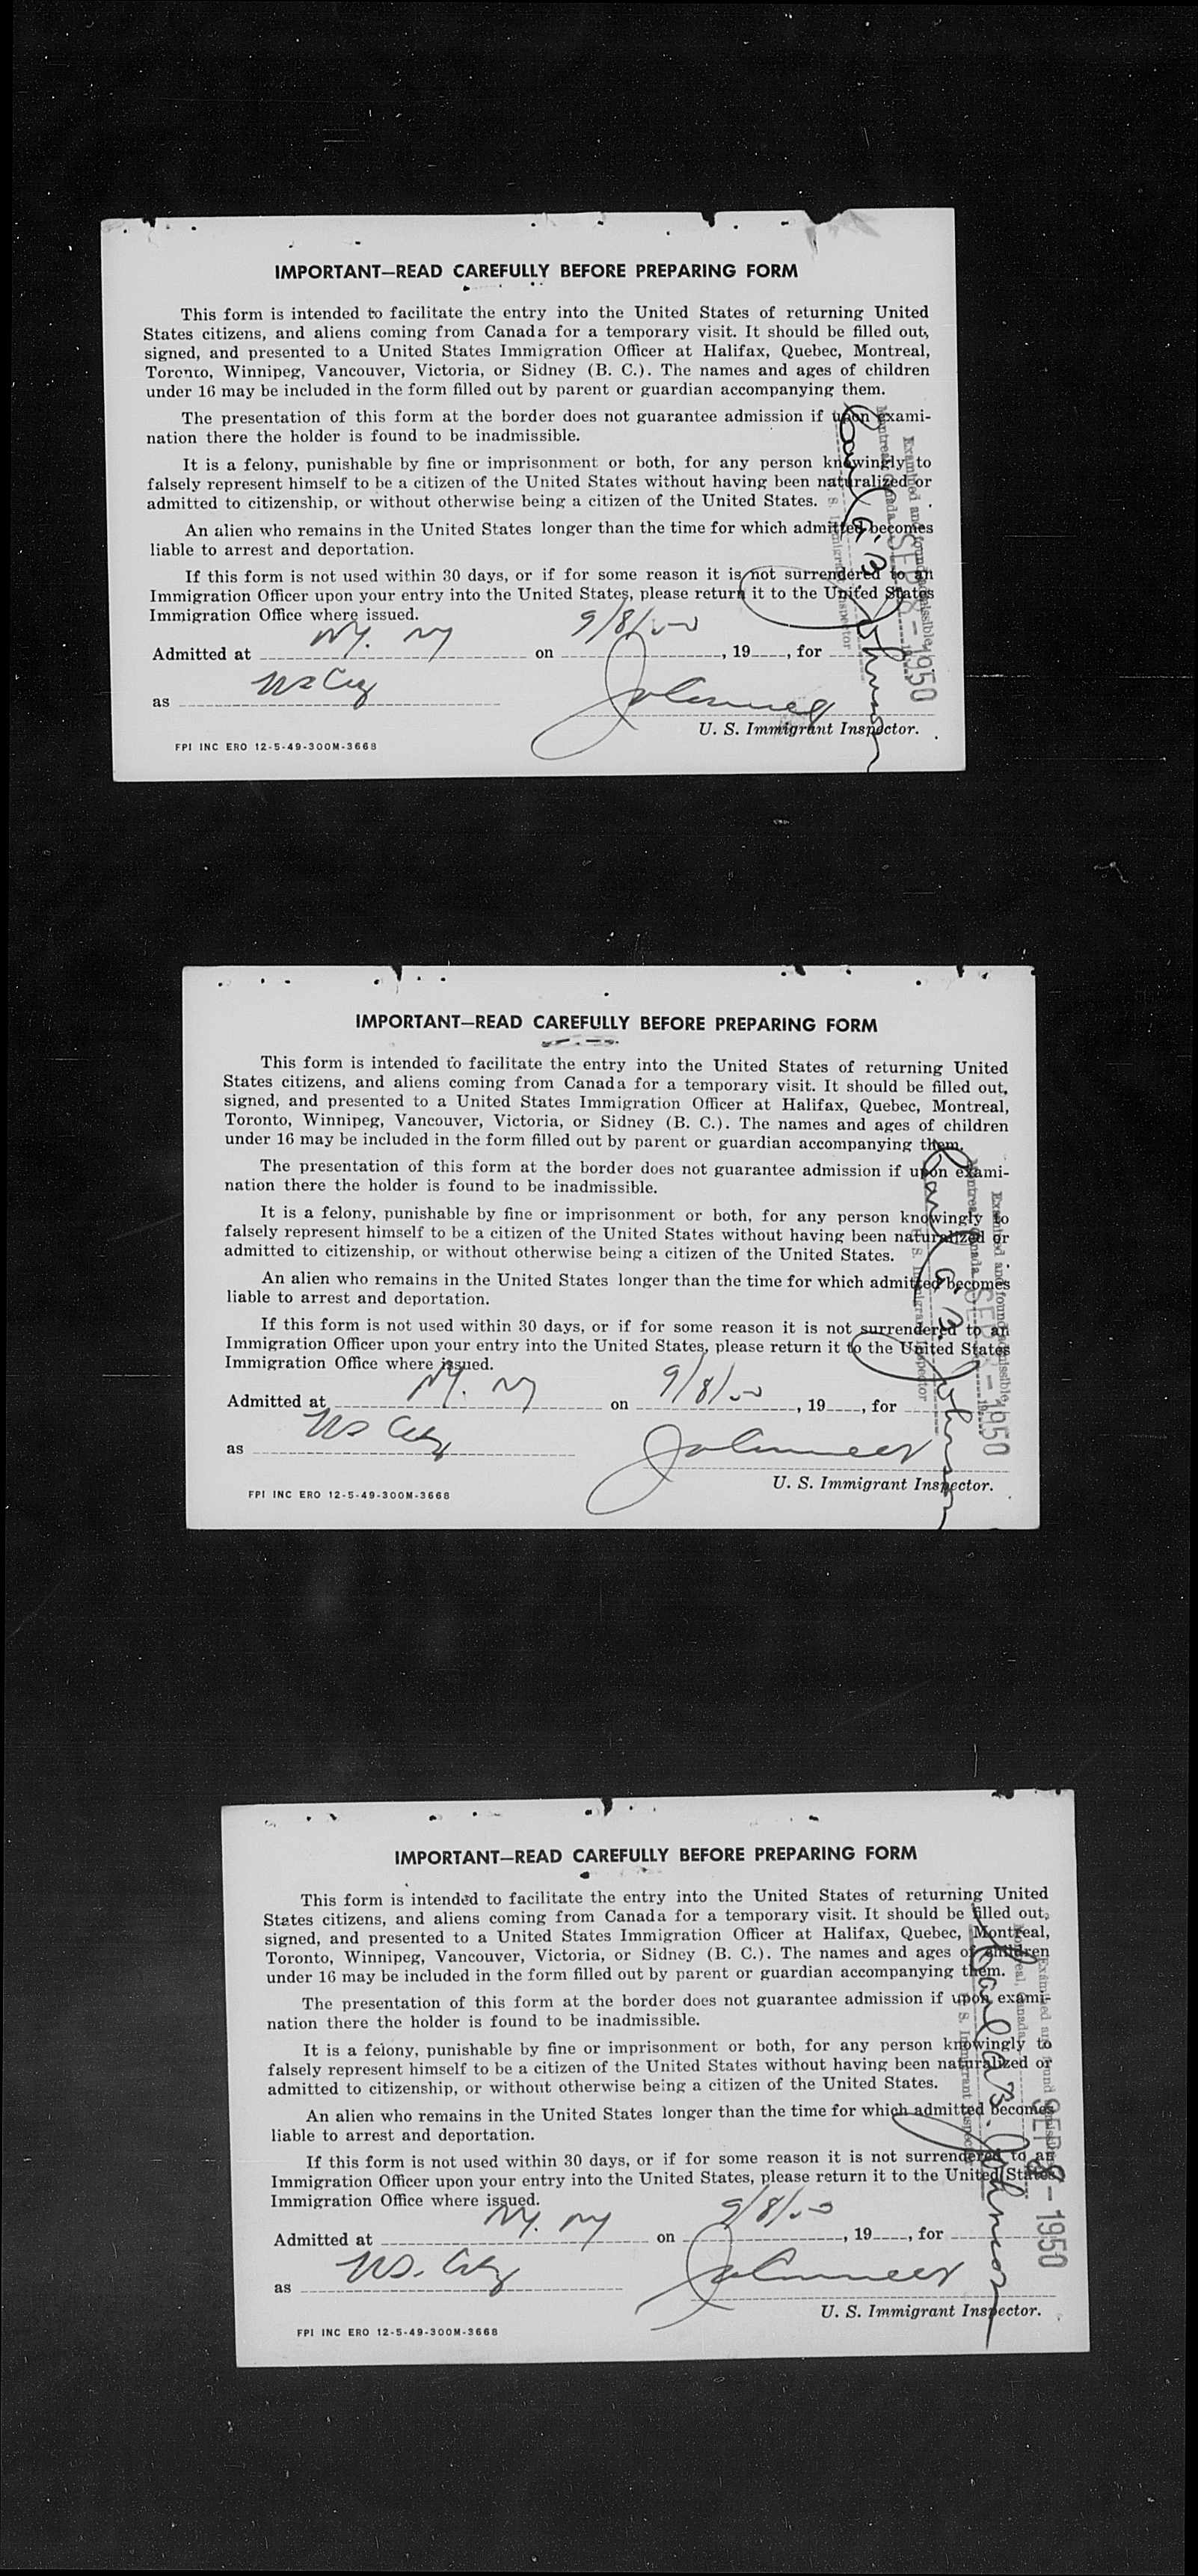 IMPORTANT—READ CAREFULLY BEFORE PREPARING FORM
This form is intended to facilitate the entry into the United States of returning United
States citizens, and aliens coming from Canada for a temporary visit. It should be filled out,
signed, and presented to a United States Immigration Officer at Halifax, Quebec, Montreal,
Toronto, Winnipeg, Vancouver, Victoria, or Sidney (B. C.). The names and ages of children
under 16 may be included in the form filled out by parent or guardian accompanying them.
The presentation of this form at the border does not guarantee admission if upon exami-
nation there the holder is found to be inadmissible.
It is a felony, punishable by fine or imprisonment or both, for any person knowingly to
falsely represent himself to be a citizen of the United States without having been naturalized or
admitted to citizenship, or without otherwise being a citizen of the United States.
An alien who remains in the United States longer than the time for which admitted becomes
liable to arrest and deportation.
If this form is not used within 30 days, or if for some reason it is not surrendered to an
Immigration Officer upon your entry into the United States, please return it to the United States
Immigration Office where issued.
Admitted at NY. NY on 9/8/50, 19, for
as US Citz
U. S. Immigrant Inspector.
FPI INC ERO 12-5-49-300M-3668
Examined and found admissible,
Montreal, Canada SEP 8 - 1950
Carl A. B. Johnson
U. S. Immigrant Inspector
IMPORTANT—READ CAREFULLY BEFORE PREPARING FORM
This form is intended to facilitate the entry into the United States of returning United
States citizens, and aliens coming from Canada for a temporary visit. It should be filled out,
signed, and presented to a United States Immigration Officer at Halifax, Quebec, Montreal,
Toronto, Winnipeg, Vancouver, Victoria, or Sidney (B. C.). The names and ages of children
under 16 may be included in the form filled out by parent or guardian accompanying them.
The presentation of this form at the border does not guarantee admission if upon exami-
nation there the holder is found to be inadmissible.
It is a felony, punishable by fine or imprisonment or both, for any person knowingly to
falsely represent himself to be a citizen of the United States without having been naturalized or
admitted to citizenship, or without otherwise being a citizen of the United States.
An alien who remains in the United States longer than the time for which admitted becomes
liable to arrest and deportation.
If this form is not used within 30 days, or if for some reason it is not surrendered to an
Immigration Officer upon your entry into the United States, please return it to the United States
Immigration Office where issued.
Admitted at NY. NY on 9/8/50, 19, for
as US Citz
U. S. Immigrant Inspector.
FPI INC ERO 12-5-49-300M-3668
Examined and found admissible,
Montreal, Canada SEP 8 - 1950
Carl A. B. Johnson
U. S. Immigrant Inspector
IMPORTANT—READ CAREFULLY BEFORE PREPARING FORM
This form is intended to facilitate the entry into the United States of returning United
States citizens, and aliens coming from Canada for a temporary visit. It should be filled out,
signed, and presented to a United States Immigration Officer at Halifax, Quebec, Montreal,
Toronto, Winnipeg, Vancouver, Victoria, or Sidney (B. C.). The names and ages of children
under 16 may be included in the form filled out by parent or guardian accompanying them.
The presentation of this form at the border does not guarantee admission if upon exami-
nation there the holder is found to be inadmissible.
It is a felony, punishable by fine or imprisonment or both, for any person knowingly to
falsely represent himself to be a citizen of the United States without having been naturalized or
admitted to citizenship, or without otherwise being a citizen of the United States.
An alien who remains in the United States longer than the time for which admitted becomes
liable to arrest and deportation.
If this form is not used within 30 days, or if for some reason it is not surrendered to an
Immigration Officer upon your entry into the United States, please return it to the United States
Immigration Office where issued.
Admitted at NY. NY on 9/8/50, 19, for
as US. Citz
U. S. Immigrant Inspector.
FPI INC ERO 12-5-49-300M-3668
Examined and found admissible,
Montreal, Canada SEP 8 - 1950
Carl A. B. Johnson
U. S. Immigrant Inspector